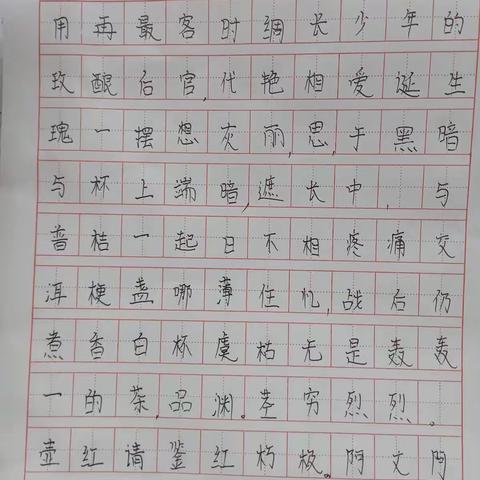 用再最客时绸长少年的
玫酿后官,代艳相爱诞生
瑰一摆想灰丽,思,于黑暗
与杯上端暗,遮长中,与
普桔一起日不相疼痛交
洱梗盏哪薄住忆,战后仍
煮香白杯虞枯无是轰轰
一的茶,品渊。茎穷烈烈。
壶红请鉴红朽极。阿丈阿